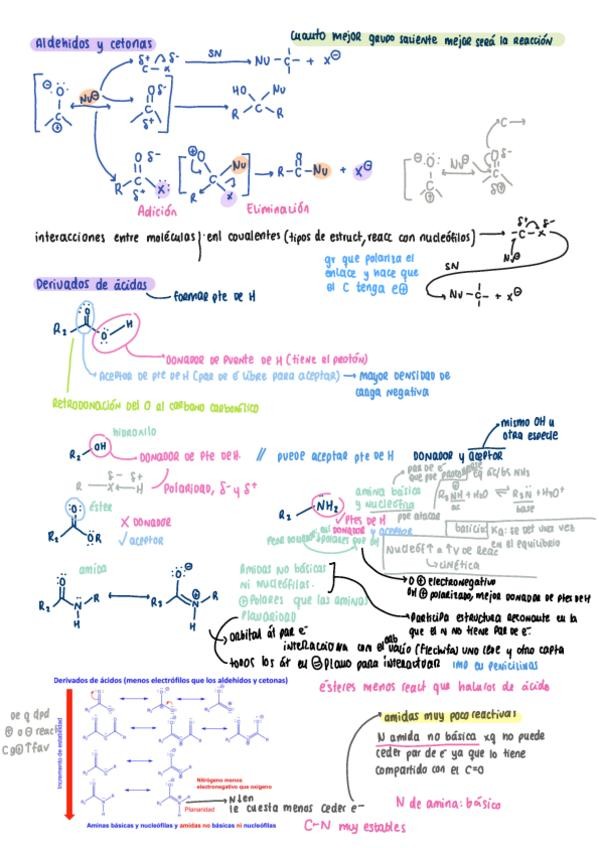 Aldehidos y cetonas
Cuanto mejor grupo saliente mejor será la reacción
SN
Adición
Eliminación
interacciones entre moléculas } enl covalentes (tipos de estruct, reacc con nucleófilos)
gr que polariza el
enlace y hace que
el C tenga e⊕
SN
Derivados de ácidos
formar pte de H
DONADOR DE PUENTE DE H (tiene el protón)
ACEPTOR DE pte DE H (PAR DE e⁻ libre para aceptar) → MAYOR DENSIDAD DE
CARGA NEGATIVA
RETRODONACIÓN DEL O al carbono carbonílico
hidroxilo
R₂ OH
DONADOR DE Pte DE H.
// puede aceptar pte DE H
DONADOR y aceptor
mismo OH u
otra especie
Polaridad, δ⁻ y δ⁺
éster
X DONADOR
✓ aceptor
amina básica
y nucleófila
✓ Ptes DE H
DONADOR y aceptor
Nucleóf ↑ a ↑V de reac
cinética
basicidad
Ka: se det una vez
en el equilibrio
amida
Amidas NO básicas
ni nucleófilas.
⊕ Polares que las aminas
PLANARIDAD
O ⊕ electronegativo
OH ⊕ polarizado, mejor donador de ptes de H
Participa estructura resonante en la
que el N no tiene PAR DE e⁻.
orbital dl par e⁻
interacciona con el orb vacío (flechita) uno cede y otro capta
todos los át en ⊖ plano para interactuar
IMP EN PENICILINAS
ésteres menos react que haluros de ácido
Derivados de ácidos (menos electrófilos que los aldehidos y cetonas)
Incremento de estabilidad
Nitrógeno menos
electronegativo que oxígeno
Planaridad
le cuesta menos ceder e⁻
Aminas básicas y nucleófilas y amidas no básicas ni nucleófilas
amidas muy poco reactivas
N amida no básica xq no puede
ceder par de e⁻ ya que lo tiene
compartido con el C=O
N de amina: básico
C-N muy estables